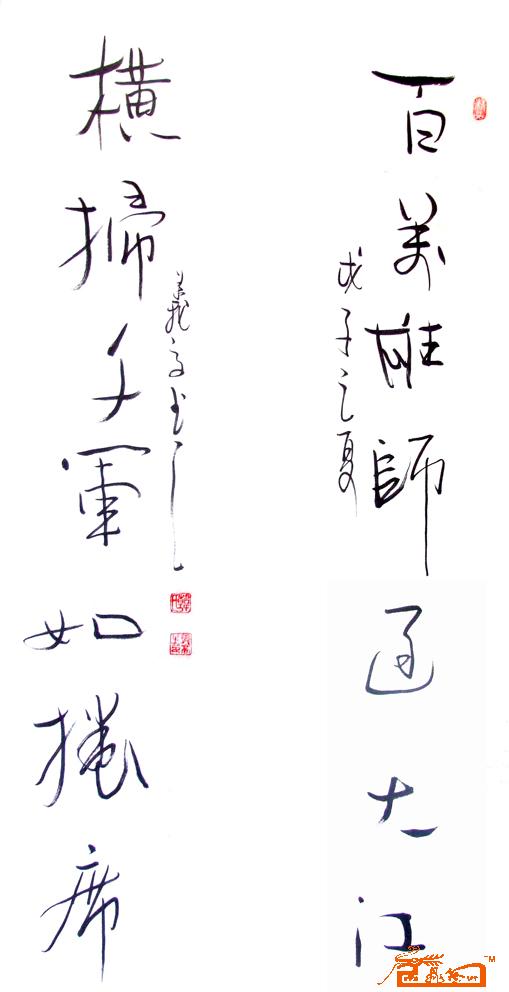 百萬雄師過大江
戊子之夏
橫掃千軍如捲席